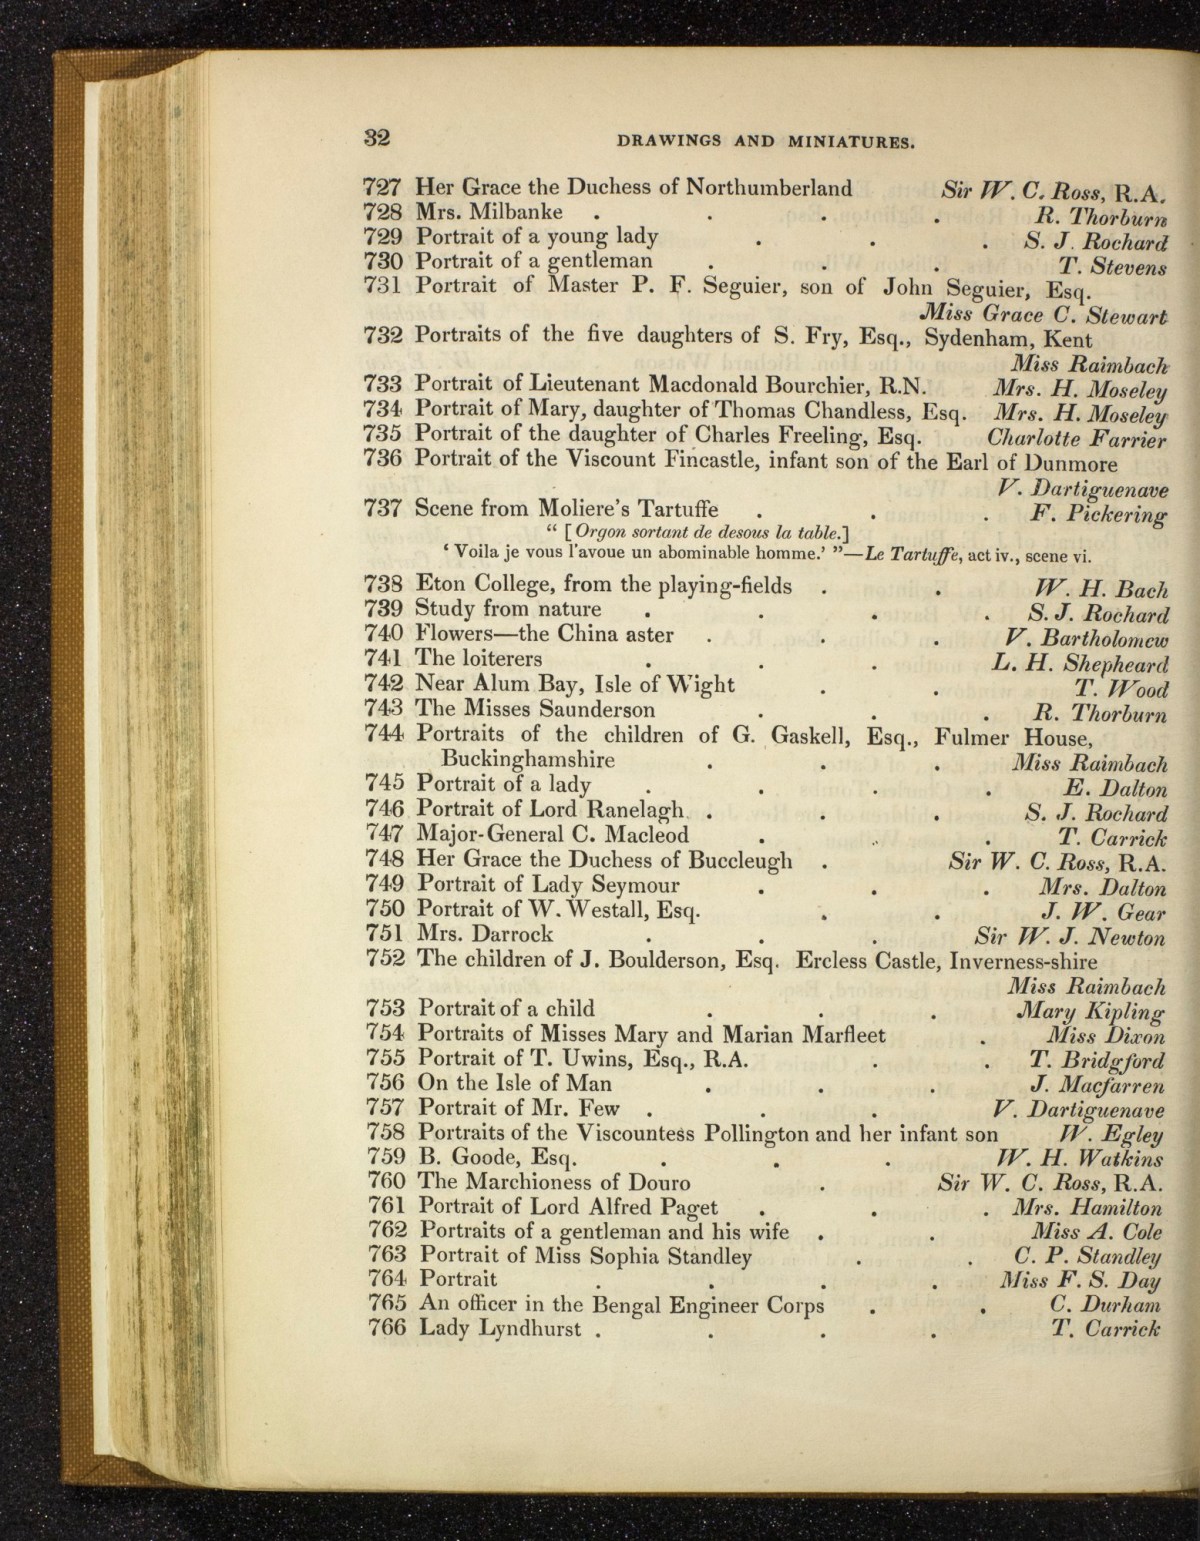 32 DRAWINGS AND MINIATURES.
727 Her Grace the Duchess of Northumberland Sir W. C. Ross, R.A.
728 Mrs. Milbanke . . . . R. Thorburn
729 Portrait of a young lady . . . S. J. Rochard
730 Portrait of a gentleman . . . T. Stevens
731 Portrait of Master P. F. Seguier, son of John Seguier, Esq.
Miss Grace C. Stewart
732 Portraits of the five daughters of S. Fry, Esq., Sydenham, Kent
Miss Raimbach
733 Portrait of Lieutenant Macdonald Bourchier, R.N. Mrs. H. Moseley
734 Portrait of Mary, daughter of Thomas Chandless, Esq. Mrs. H. Moseley
735 Portrait of the daughter of Charles Freeling, Esq. Charlotte Farrier
736 Portrait of the Viscount Fincastle, infant son of the Earl of Dunmore
V. Dartiguenave
737 Scene from Moliere's Tartuffe . . . F. Pickering
“ [Orgon sortant de desous la table.]
‘ Voila je vous l'avoue un abominable homme.’ ”—Le Tartuffe, act iv., scene vi.
738 Eton College, from the playing-fields . . W. H. Bach
739 Study from nature . . . . S. J. Rochard
740 Flowers—the China aster . . . V. Bartholomew
741 The loiterers . . . L. H. Shepheard
742 Near Alum Bay, Isle of Wight . . T. Wood
743 The Misses Saunderson . . . R. Thorburn
744 Portraits of the children of G. Gaskell, Esq., Fulmer House,
Buckinghamshire . . . Miss Raimbach
745 Portrait of a lady . . . . E. Dalton
746 Portrait of Lord Ranelagh . . . S. J. Rochard
747 Major-General C. Macleod . . . T. Carrick
748 Her Grace the Duchess of Buccleugh . Sir W. C. Ross, R.A.
749 Portrait of Lady Seymour . . . Mrs. Dalton
750 Portrait of W. Westall, Esq. . . J. W. Gear
751 Mrs. Darrock . . . Sir W. J. Newton
752 The children of J. Boulderson, Esq. Ercless Castle, Inverness-shire
Miss Raimbach
753 Portrait of a child . . . Mary Kipling
754 Portraits of Misses Mary and Marian Marfleet . Miss Dixon
755 Portrait of T. Uwins, Esq., R.A. . . T. Bridgford
756 On the Isle of Man . . . J. Macfarren
757 Portrait of Mr. Few . . . V. Dartiguenave
758 Portraits of the Viscountess Pollington and her infant son W. Egley
759 B. Goode, Esq. . . . W. H. Watkins
760 The Marchioness of Douro . Sir W. C. Ross, R.A.
761 Portrait of Lord Alfred Paget . . . Mrs. Hamilton
762 Portraits of a gentleman and his wife . . Miss A. Cole
763 Portrait of Miss Sophia Standley . . C. P. Standley
764 Portrait . . . . Miss F. S. Day
765 An officer in the Bengal Engineer Corps . . C. Durham
766 Lady Lyndhurst . . . . T. Carrick